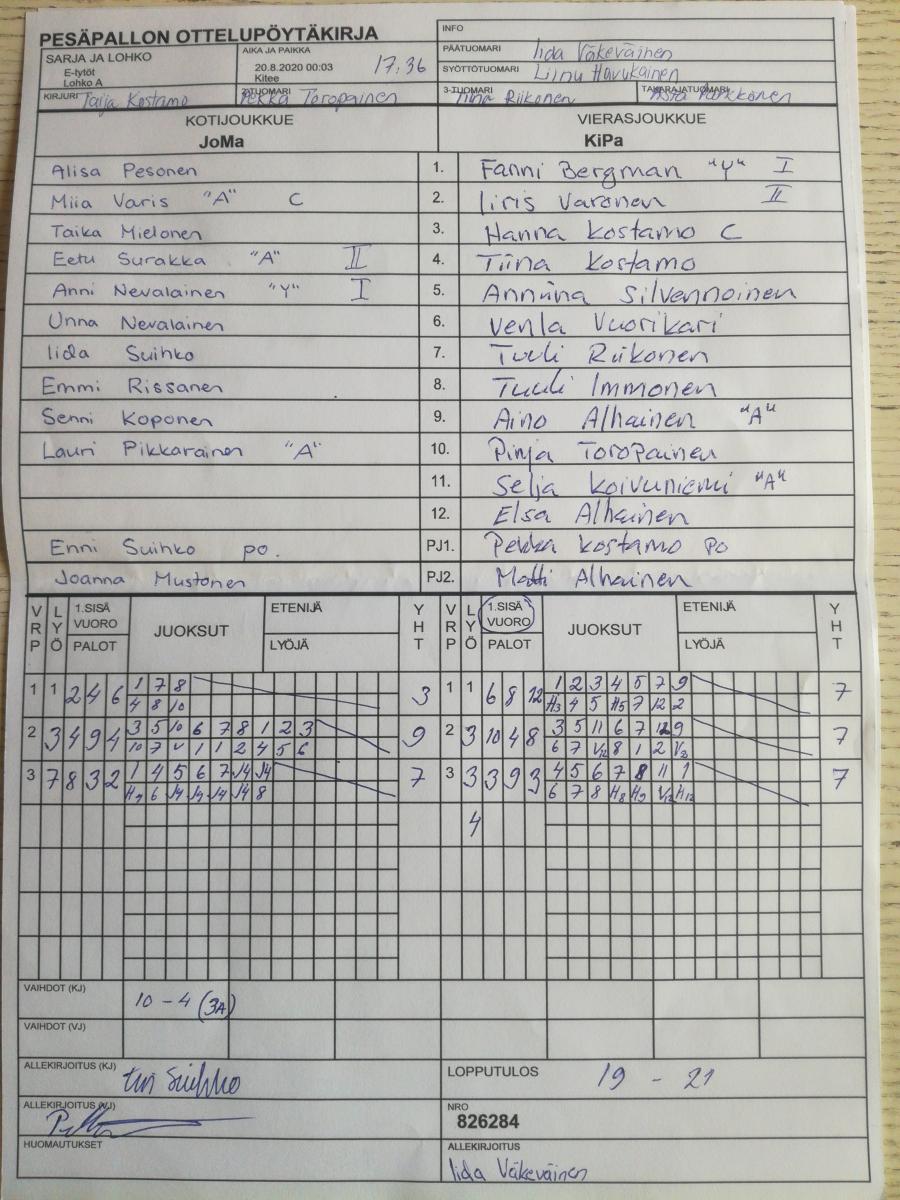 PESÄPALLON OTTELUPÖYTÄKIRJA
INFO
SARJA JA LOHKO
E-tytöt
Lohko A
AIKA JA PAIKKA
20.8.2020 00:03
Kitee
17:36
PÄÄTUOMARI Iida Väkeväinen
SYÖTTÖTUOMARI Liinu Havukainen
KIRJURI Tarja Kostamo
2-TUOMARI Pekka Toropainen
3-TUOMARI Tiina Riikonen
TAKARAJATUOMARI
KOTIJOUKKUE
JoMa
VIERASJOUKKUE
KiPa
Alisa Pesonen 1. Fanni Bergman "Y" I
Miia Varis "A" C 2. Iiris Varonen II
Taika Mielonen 3. Hanna Kostamo C
Eetu Surakka "A" II 4. Tiina Kostamo
Anni Nevalainen "Y" I 5. Anniina Silvennoinen
Unna Nevalainen 6. Venla Vuorikari
Iida Suihko 7. Tuuli Riikonen
Emmi Rissanen 8. Tuuli Immonen
Senni Koponen 9. Aino Alhainen "A"
Lauri Pikkarainen "A" 10. Pinja Toropainen
11. Selja Koivuniemi "A"
12. Elsa Alhainen
Enni Suihko po. PJ1. Pekka Kostamo po
Joanna Mustonen PJ2. Matti Alhainen
VRP LYÖ 1.SISÄ VUORO PALOT JUOKSUT ETENIJÄ LYÖJÄ YHT VRP LYÖ 1.SISÄ VUORO PALOT JUOKSUT ETENIJÄ LYÖJÄ YHT
1 1 2 4 6 1 7 8 3 1 1 6 8 12 1 2 3 4 5 7 9 7
4 8 10 H3 4 5 H5 7 12 2
2 3 4 9 4 3 5 10 6 7 8 1 2 3 9 2 3 10 4 8 3 5 11 6 7 12 9 7
10 7 V 1 1 2 4 5 6 6 7 V12 8 1 2 V2
3 7 8 3 2 1 4 5 6 7 J4 J4 7 3 3 3 9 3 4 5 6 7 8 11 1 7
6 J4 J4 J4 J4 8 6 7 8 H8 H9 V12 H12
4
VAIHDOT (KJ) 10 - 4 (3A)
VAIHDOT (VJ)
ALLEKIRJOITUS (KJ) Suihko
LOPPUTULOS 19 - 21
ALLEKIRJOITUS (VJ)
NRO
826284
HUOMAUTUKSET
ALLEKIRJOITUS
Iida Väkeväinen